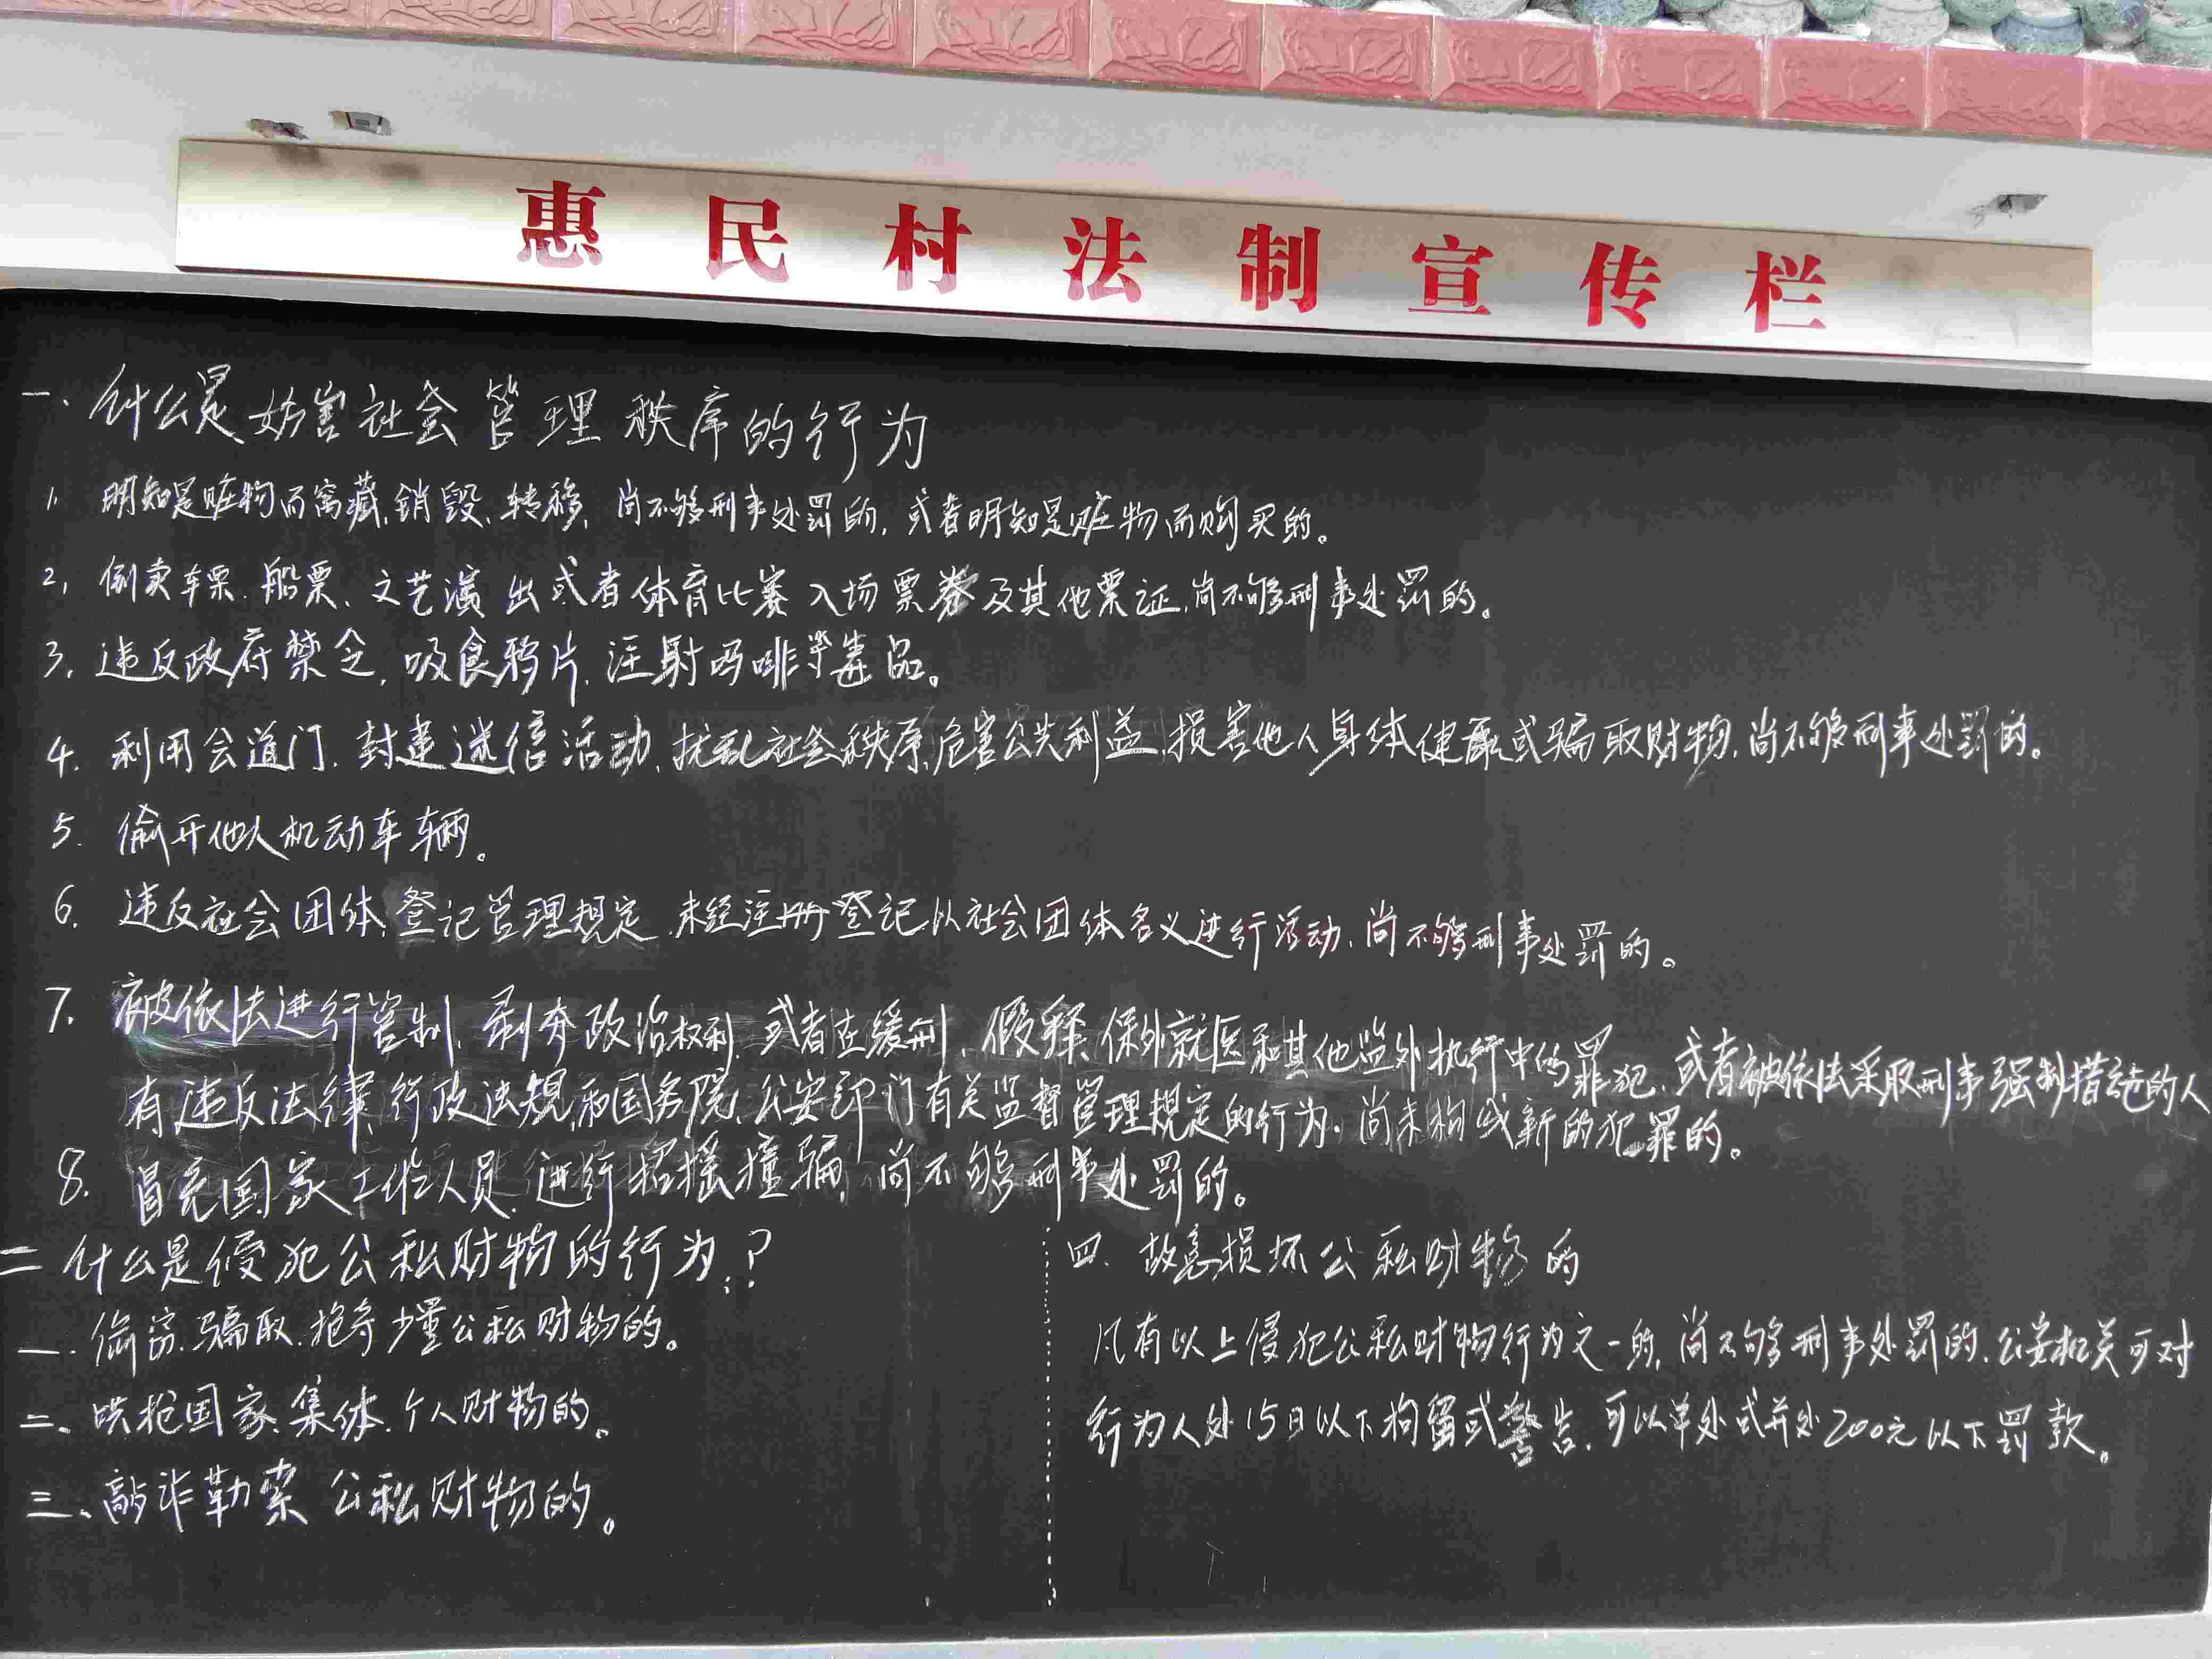 惠民村法制宣传栏
一. 什么是妨害社会管理秩序的行为
1, 明知是赃物而窝藏,销毁、转移, 尚不够刑事处罚的, 或者明知是赃物而购买的。
2, 倒卖车票. 船票、文艺演出或者体育比赛入场票券及其他票证,尚不够刑事处罚的。
3, 违反政府禁令, 吸食鸦片, 注射吗啡等毒品。
4. 利用会道门. 封建迷信活动, 扰乱社会秩序,危害公共利益, 损害他人身体健康或骗取财物, 尚不够刑事处罚的。
5. 偷开他人机动车辆。
6. 违反社会团体登记管理规定, 未经注册登记以社会团体名义进行活动, 尚不够刑事处罚的。
7. 被依法进行管制, 剥夺政治权利, 或者在缓刑、假释、保外就医和其他监外执行中的罪犯, 或者被依法采取刑事强制措施的人
有违反法律,行政法规,和国务院, 公安部门有关监督管理规定的行为, 尚未构成新的犯罪的。
8. 冒充国家工作人员, 进行招摇撞骗, 尚不够刑事处罚的。
二 什么是侵犯公私财物的行为?
一. 偷窃.骗取.抢夺少量公私财物的。
二、哄抢国家、集体、个人财物的。
三、敲诈勒索公私财物的。
四. 故意损坏公私财物的
凡有以上侵犯公私财物行为之一的, 尚不够刑事处罚的, 公安机关可对
行为人处15日以下拘留或警告, 可以单处或并处200元以下罚款。